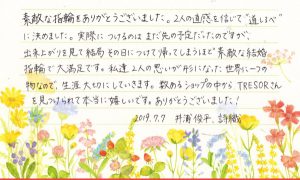 素敵な指輪をありがとうございました。2人の直感を信じて"道しるべ"
に決めました。実際につけるのはまだ先の予定だったのですが、
出来上がりを見て結局その日につけて帰ってしまうほど素敵な結婚
指輪で大満足です。私達2人の思いが形になった世界に一つの
物なので、生涯大切にしていきます。数あるショップの中からTRESORさん
を見つけられて本当に嬉しいです。ありがとうございました!
2019.7.7 井浦俊平、詩織